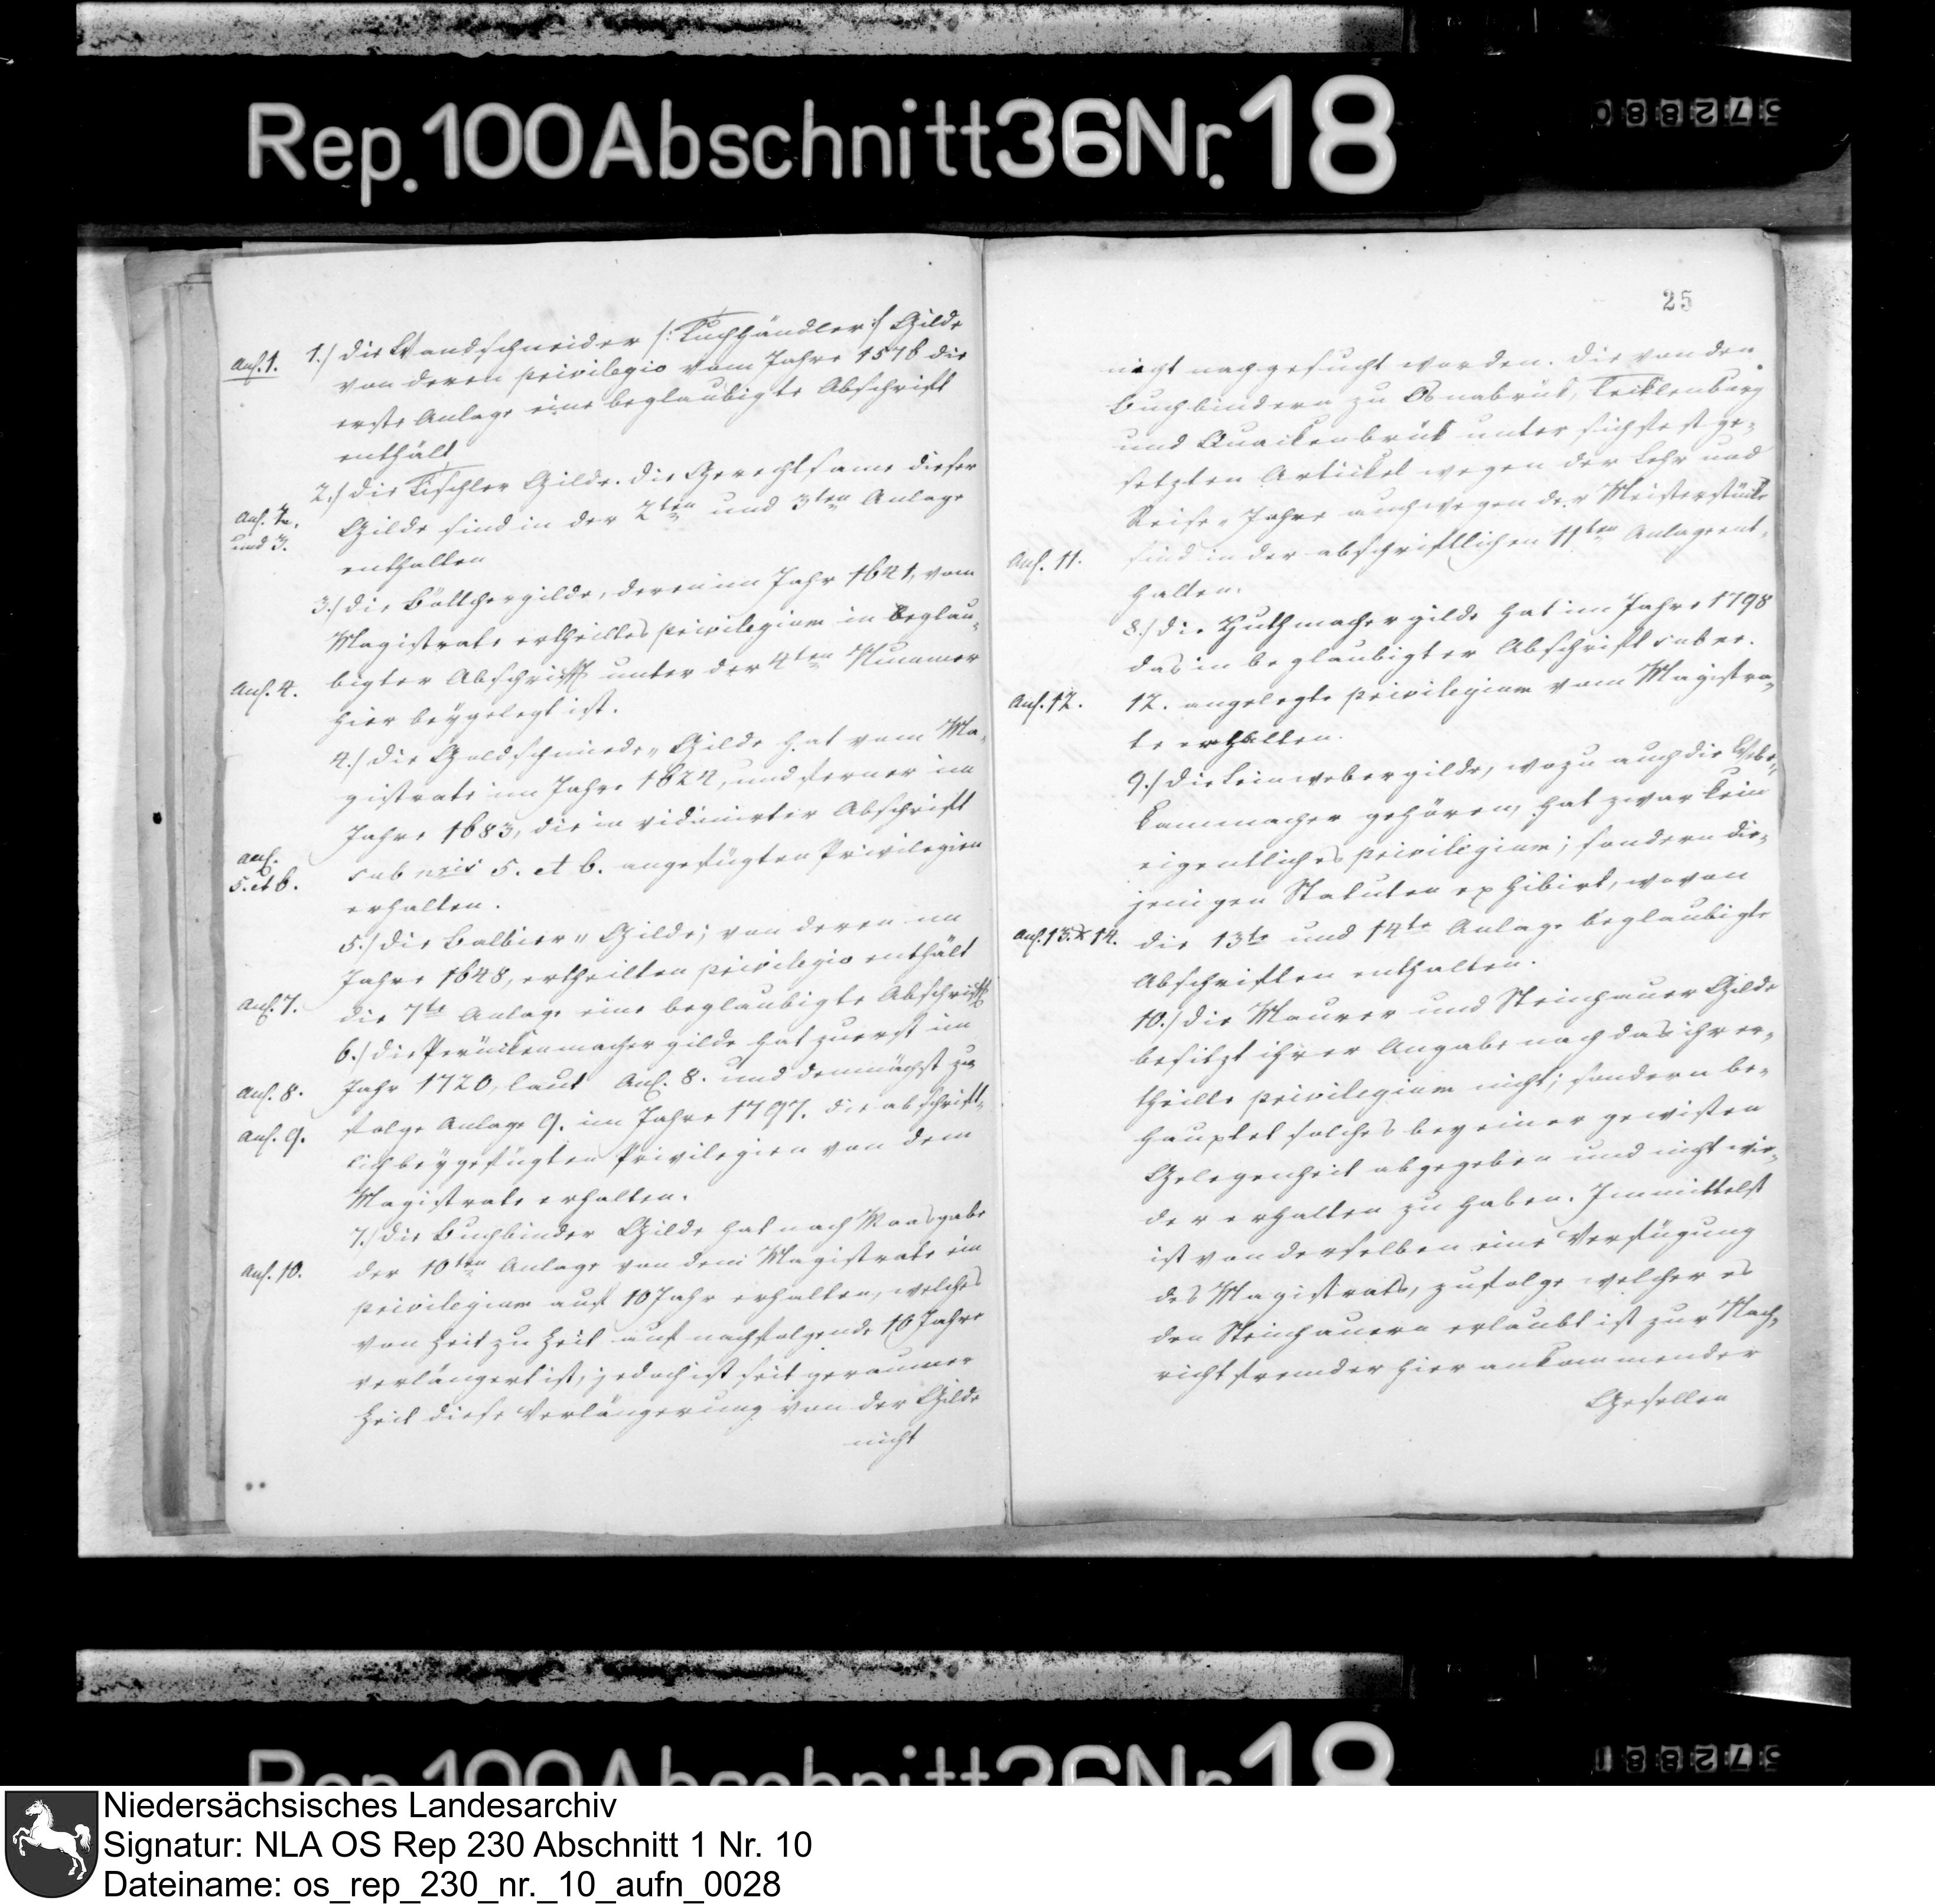 Rep. 100 Abschnitt 36 Nr. 18
572880
Anl. 1.
1.) die Wandschneider /: Tuchhändler :/ Gilde
von deren privilegio vom Jahre 1576 die
erste Anlage eine beglaubigte Abschrift
enthält
2.) die Tischler Gilde. die Gerechtsame dieser
Anl. 2.
und 3.
Gilde sind in der 2ten und 3ten Anlage
enthalten
3.) die Böttchergilde, deren im Jahr 1621, vom
Magistrate ertheiltes privilegium in beglau-
Anl. 4.
bigter Abschrift unter der 4ten Nummer
hier beygelegt ist.
4.) die Goldschmiede-Gilde hat vom Ma-
gistrate im Jahre 1622, und ferner im
Jahre 1683, die in vidimirter Abschrift
Anl.
5. et 6.
sub nris 5. et 6. angefügten Privilegien
erhalten.
5.) die Balbier-Gilde; von deren im
Jahre 1648, ertheilten privilegio enthält
Anl. 7.
die 7te Anlage eine beglaubigte Abschrift
6.) die Perückenmachergilde hat zuerst im
Anl. 8.
Jahr 1720, laut Anl. 8. und demnächst zu-
Anl. 9.
folge Anlage 9. im Jahre 1797. die abschrift-
lich beygefügten Privilegien von dem
Magistrate erhalten.
7.) die Buchbinder Gilde hat nach Maasgabe
Anl. 10.
der 10ten Anlage von dem Magistrate ein
privilegium auf 10 Jahr erhalten, welches
von Zeit zu Zeit auf nachfolgende 10 Jahre
verlängert ist; jedoch ist seit geraumer
Zeit diese Verlängerung von der Gilde
nicht
25
nicht nachgesucht worden. Die von den
Buchbindern zu Osnabrück, Tecklenburg
und Quackenbrück unter sich fest ge-
setzten Artickel wegen der Lehr und
Reise-Jahre auch wegen der Meisterstücke
Anl. 11.
sind in der abschriftlichen 11ten Anlage ent-
halten.
8.) die Huthmachergilde hat im Jahre 1798
das in beglaubigter Abschrift sub nr.
Anl. 12.
12. angelegte privilegium vom Magistra-
te erhalten.
9.) die Leinwebergilde, wozu auch die Webe-
kammacher gehören, hat zwar kein
eigentliches privilegium; sondern die-
jenigen Statuten exhibirt, wovon
Anl. 13. & 14.
die 13te und 14te Anlage beglaubigte
Abschriften enthalten.
10.) die Maurer und Steinhauer Gilde
besitzt ihrer Angabe nach das ihr er-
theilte privilegium nicht; sondern be-
hauptet solches bey einer gewissen
Gelegenheit abgegeben und nicht wie-
der erhalten zu haben. Immittelst
ist von derselben eine Verfügung
des Magistrats, zufolge welcher es
den Steinhauern erlaubt ist zur Nach-
richt fremder hier ankommender
Gesellen
Rep. 100 Abschnitt 36 Nr. 18
572881
Niedersächsisches Landesarchiv
Signatur: NLA OS Rep 230 Abschnitt 1 Nr. 10
Dateiname: os_rep_230_nr._10_aufn_0028